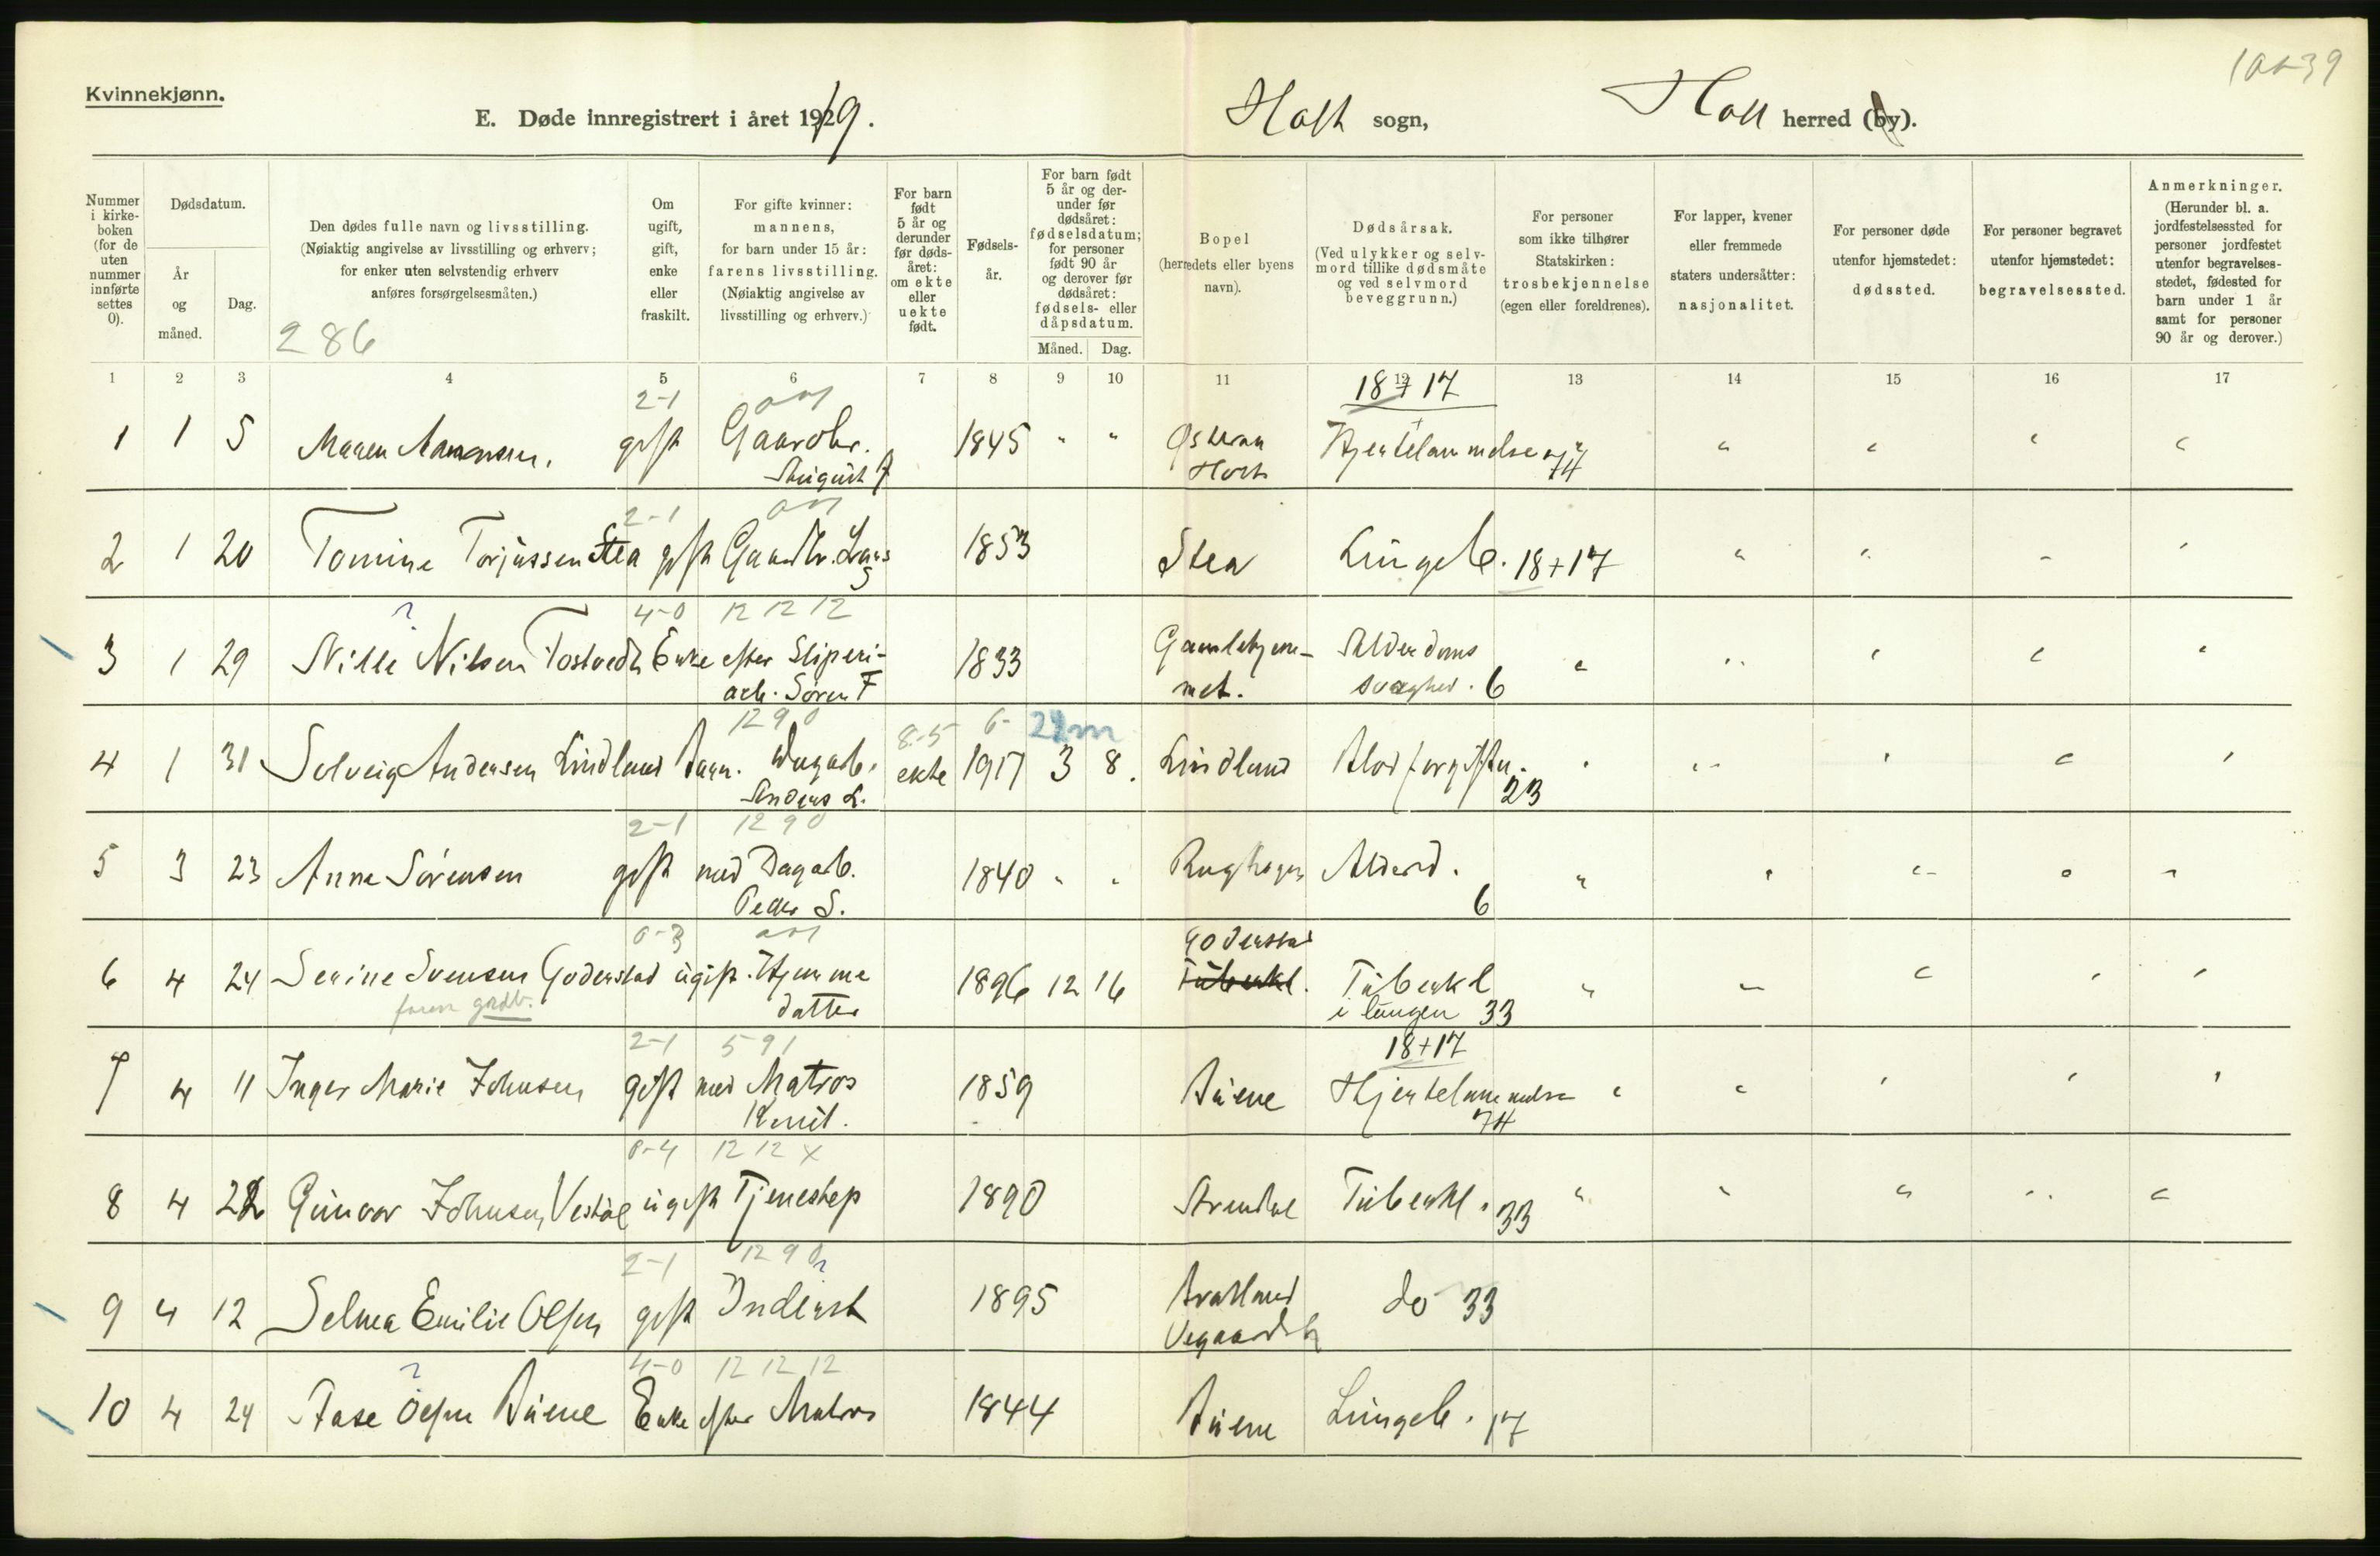 1ok 39
Kvinnekjønn.
E. Døde innregistrert i året 1919.
Holt sogn, Holt herred (by).
Nummer i kirkeboken (for de uten nummer innførte settes 0).
Dødsdatum.
År og måned.
Dag.
Den dødes fulle navn og livsstilling.
(Nøiaktig angivelse av livsstilling og erhverv;
for enker uten selvstendig erhverv
anføres forsørgelsesmåten.)
286
Om ugift, gift, enke eller fraskilt.
For gifte kvinner: mannens, for barn under 15 år: farens livsstilling. (Nøiaktig angivelse av livsstilling og erhverv.)
For barn født 5 år og derunder før dødsåret: om ekte eller uekte født.
Fødselsår.
For barn født 5 år og derunder før dødsåret: fødselsdatum; for personer født 90 år og derover før dødsåret: fødsels- eller dåpsdatum.
Måned. Dag.
Bopel (herredets eller byens navn).
Dødsårsak.
(Ved ulykker og selvmord tillike dødsmåte og ved selvmord beveggrunn.)
For personer som ikke tilhører Statskirken: trosbekjennelse (egen eller foreldrenes).
For lapper, kvener eller fremmede staters undersåtter: nasjonalitet.
For personer døde utenfor hjemstedet: dødssted.
For personer begravet utenfor hjemstedet: begravelsessted.
Anmerkninger.
(Herunder bl. a. jordfestelsessted for personer jordfestet utenfor begravelsesstedet, fødested for barn under 1 år samt for personer 90 år og derover.)
1 2 3 4 5 6 7 8 9 10 11 12 13 14 15 16 17
2-1 18+17
1 1 5 Maren gift Gaardbr. 1845 " " Hjertelammelse 74
August
2-1
2 1 20 Tomine Torjussen Stea gift Gaardbr. Lars S 1853 Stea Lungeb. 18+17
4-0 12 12 12
3 1 29 Nille Nilsen Tostvedt Enke efter Sliperi- 1833 Gamlehjem- Alderdoms
arb. Søren T met. svaghed. 6
12 9 0 8-5 6- 22m
4 1 31 Solveig Andersen Lindland barn. Dagarb. ekte 1917 3 8. Lindland Blodforgiftn. 23
Anders L.
2-1 12 9 0
5 3 23 Anne Sørensen gift med Dagarb. 1840 " " Alderd. 6
Peder S.
0-3 Goderstad
6 4 24 Serine Svensen Goderstad ugift. Hjemme 1896 12 16 Tuberkl. Tuberkl
faren grdbr. datter i lungen 33
2-1 5 9 1 18+17
7 4 11 Inger Marie Johnsen gift med Matros 1859 Buene Hjertelammelse 74
Knut.
0-4 12 12 x
8 4 22 Gunvor Johnsen Vestøl ugift Tjenestep 1890 Arendal Tuberkl. 33
2-1 12 9 0
9 4 12 Selma Emilie Olsen gift Inderst 1895 do 33
Vegaardsh
4-0 12 12 12
10 4 24 Aase Olsen Buene Enke efter Matros 1844 Buene Lungeb. 17